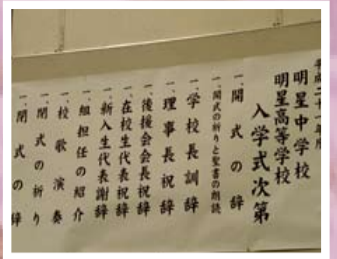 平成二十一年度
明星中学校
明星高等学校
入学式次第
一、開式の辞
一、開式の祈りと聖書の朗読
一、学校長訓辞
一、理事長祝辞
一、後援会会長祝辞
一、在校生代表祝辞
一、新入生代表謝辞
一、組担任の紹介
一、校歌演奏
一、閉式の祈り
一、閉式の辞